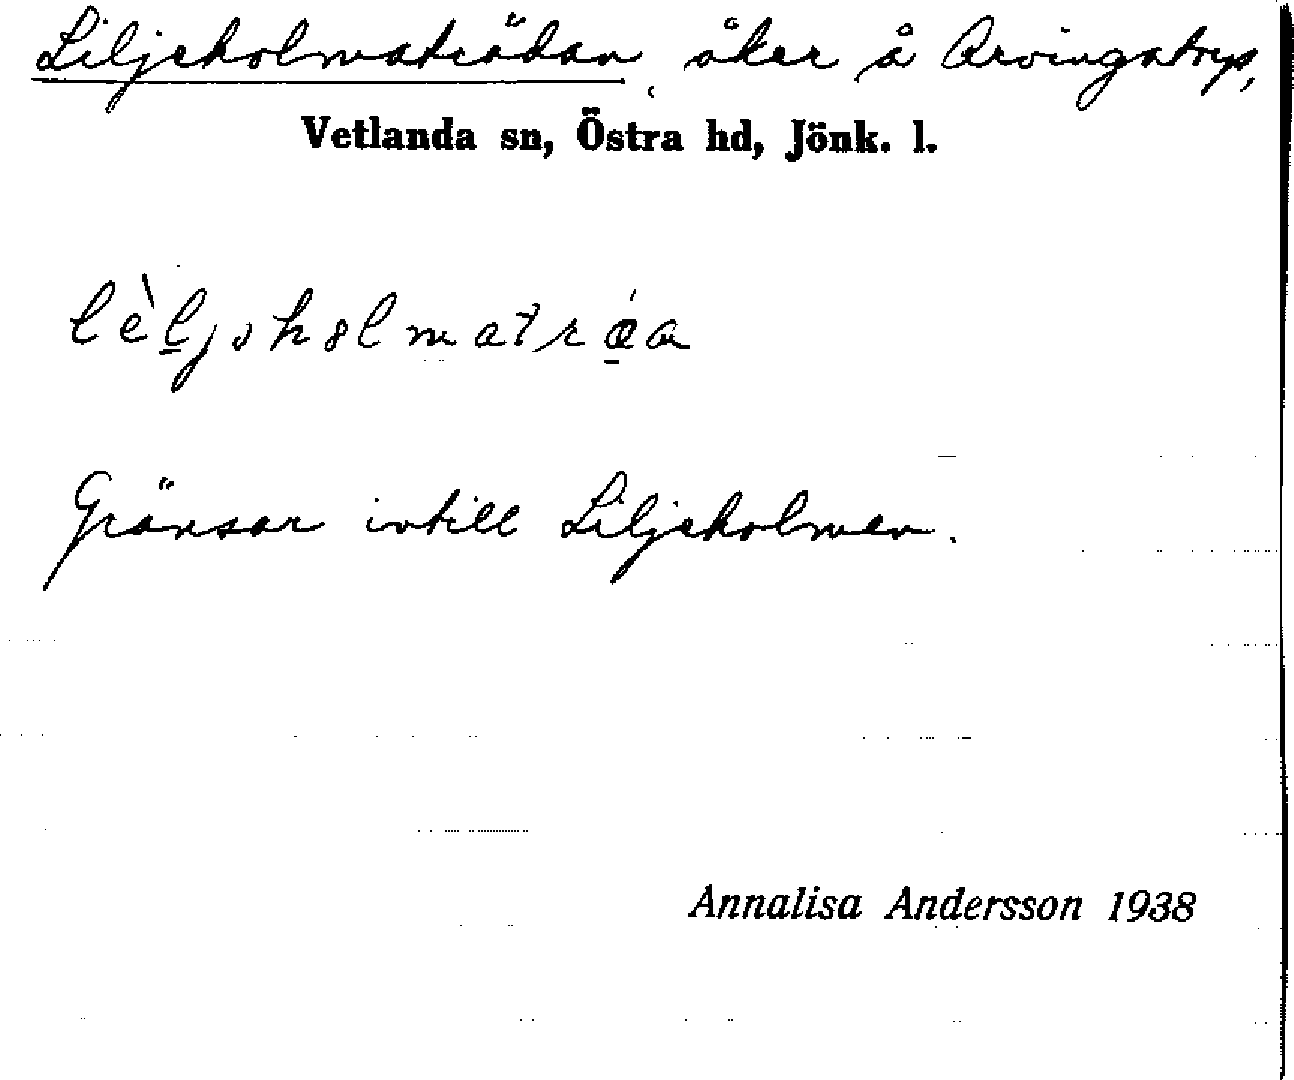 Liljeholmaträdan, åker å Arvingatorp,
Vetlanda sn, Östra hd, Jönk. l.
Gränsar intill Liljeholmen.
Annalisa Andersson 1938